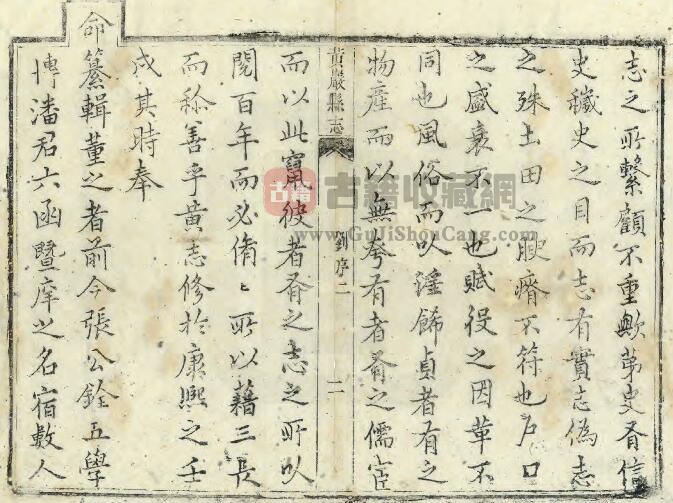 志之所繫顧不重歟苐史有信
史穢史之目而志有實志偽志
之殊土田之腴瘠不符也戶口
之盛衰不一也賦役之因革不
同也風俗而以淫飾貞者有之
物産而以無夸有者有之儒宦
黃巖縣志
劉序二
二
而以此竄彼者有之志之所以
閱百年而必脩〻所以藉三長
而称善乎黃志修於康熙之壬
戌其時奉
命纂輯董之者前令張公銓五學
博潘君六函暨庠之名宿數人
古籍收藏網
www.GuJiShouCang.com